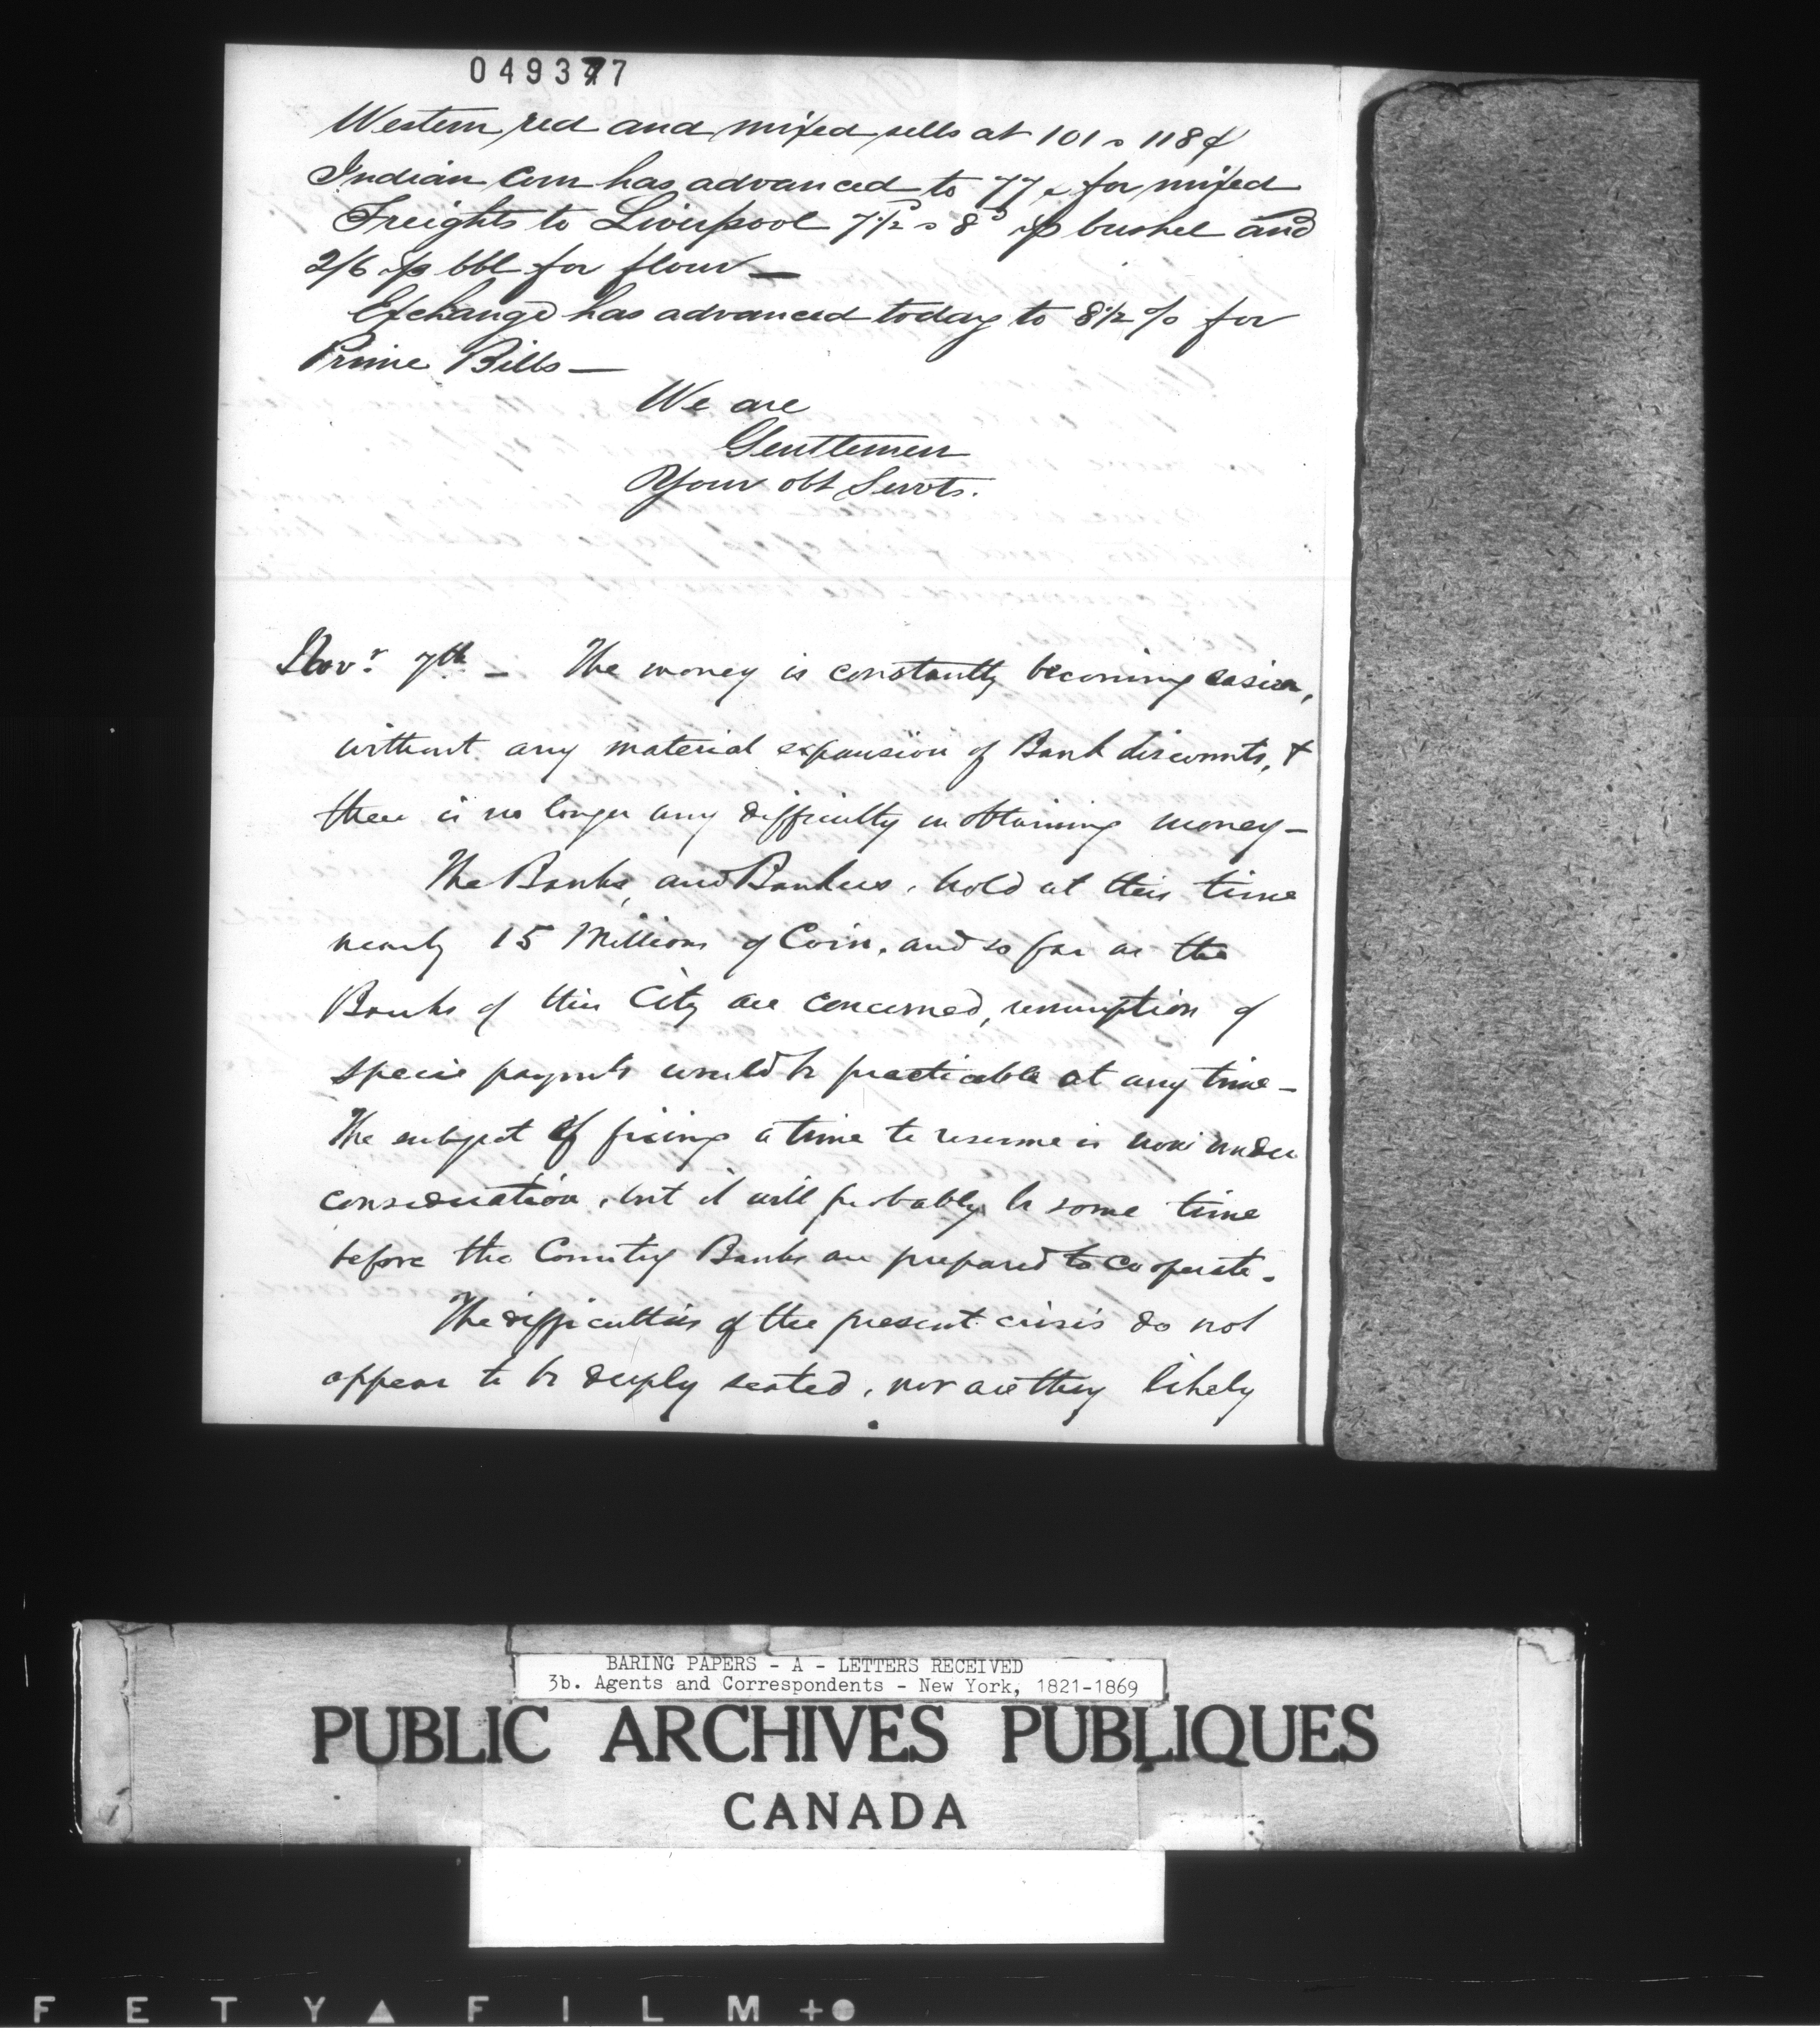 049377
Western red and mixed sells at 101 a 118¢
Indian Corn has advanced to 77c for mixed
Freights to Liverpool 7½ a 8d ⅌ bushel and
2/6 ⅌ bbl for flour —
Exchange has advanced today to 8½ % for
Prime Bills —
We are
Gentlemen
Your obt Servts.
Novr. 7th. — The money is constantly becoming easier,
without any material expansion of Bank discounts, &
there is no longer any difficulty in obtaining money —
The Banks, and Bankers, hold at this time
nearly 15 Millions of Coin, and so far as the
Banks of this City are concerned, resumption of
specie paymts would be practicable at any time —
The subject of fixing a time to resume is now under
consideration, but it will probably be some time
before the Country Banks are prepared to cooperate.
The difficulties of the present crisis do not
appear to be deeply seated, nor are they likely
BARING PAPERS - A - LETTERS RECEIVED
3b. Agents and Correspondents - New York, 1821-1869
PUBLIC ARCHIVES PUBLIQUES
CANADA
F E T Y ▲ F I L M + ●